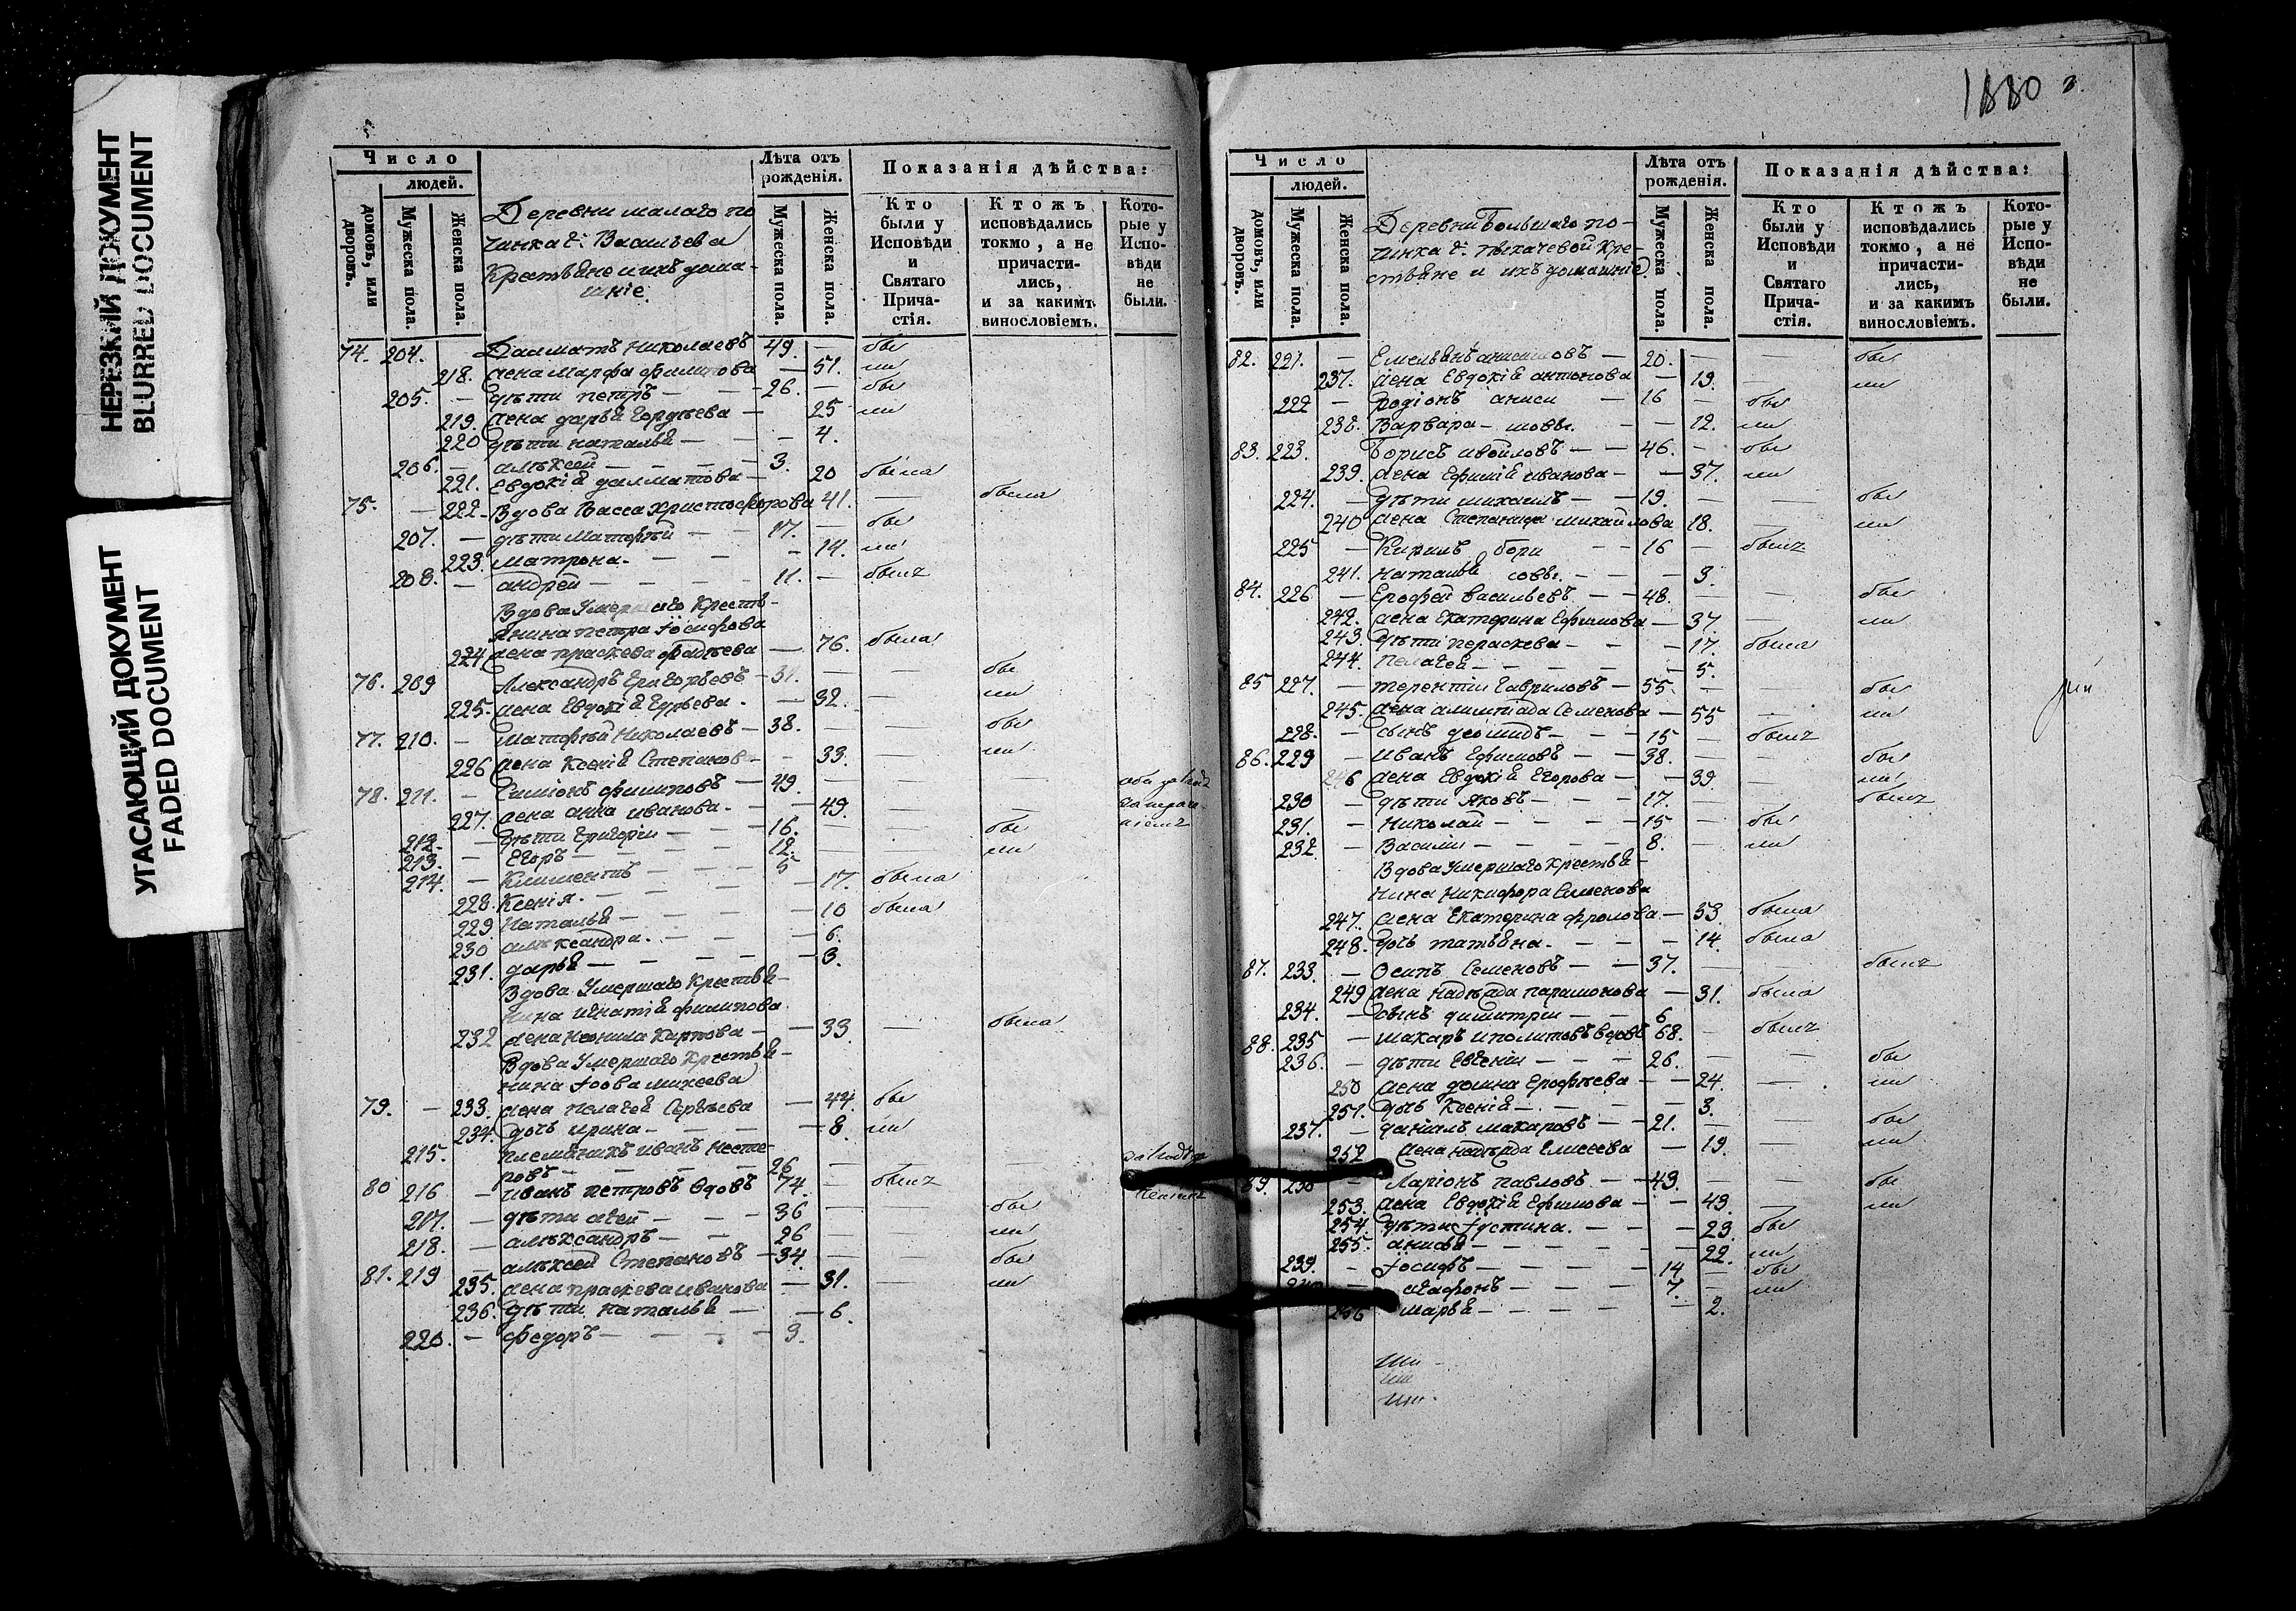 НЕРЕЗКИЙ ДОКУМЕНТ
BLURRED DOCUMENT
УГАСАЮЩИЙ ДОКУМЕНТ
FADED DOCUMENT
Число
людей.
домовъ, или дворовъ.
Мужеска пола.
Женска пола.
Деревни малаго по
чинка Васильева
Крестьяне и ихъ дома-
шніе.
Лѣта отъ рожденія.
Мужеска пола.
Женска пола.
Показанія дѣйства:
Кто были у Исповѣди и Святаго Прича-стія.
Ктожъ исповѣдались токмо, а не причасти-лись, и за какимъ винословіемъ.
Кото-рые у Испо-вѣди не были.
74. 204. Далматъ Николаевъ 49. — бы
218. жена Марфа Филипова — 51. ли
205. — дѣти Петръ — 26. — бы
219. жена Дарья — 25 ли
220 дѣти Наталья — 4.
206. — Алексей — 3.
221. Евдокія Далматова — 20 была
75. — 222. Вдова Васса Христофорова 41. — была
207. — дѣти Матфѣй — 17. — бы
223. Матрона. — 14. ли
208. — Андрей — 11. — былъ
Вдова Умершаго Кресть-
янина Петра Іосифова
224 жена Праскева Фадѣева — 76. была
76. 209 Александръ Григорьевъ — 31. — бы
225. жена Евдокія — 32. — ли
77. 210. — Матфѣй Николаевъ — 38. — бы
226 жена Ксенія Степанов — 33. ли
78. 211. — Симіонъ Филиповъ — 49.
227. жена Анна Иванова. — 49.
212. — дѣти Григорій — 16. — бы
213. — Егоръ — 12. — ли
214. — Климентъ — 5
228. Ксенія. — 17. была
229 Наталья — 10 была
230 Александра. — 6.
231. Дарья — 3.
Вдова Умершаго Крестья-
нина Игнатія Филипова
232 жена Неонила Карпова — 33. — была
Вдова Умершаго Крестья-
нина Іова Михеева
79. — 233. жена Пелагея Сергѣева — 44. бы
234. дочь Ирина. — 8. ли
215. племянникъ Иванъ Несте-
ровъ — 26
80 216 — Иванъ Петровъ вдовъ 74. — былъ
217. — дѣти — 36 — бы
218. — Александръ — 26 — ли
81. 219 — Алексей Степановъ — 34 — бы
235. жена Праскева Иванова — 31. — ли
236. дѣти Наталья — 6.
220. — Федоръ — 3.
1880
Число
людей.
домовъ, или дворовъ.
Мужеска пола.
Женска пола.
Деревни Большаго по-
чинка Кре-
стьяне и ихъ домашніе
Лѣта отъ рожденія.
Мужеска пола.
Женска пола.
Показанія дѣйства:
Кто были у Исповѣди и Святаго Прича-стія.
Ктожъ исповѣдались токмо, а не причасти-лись, и за какимъ винословіемъ.
Кото-рые у Испо-вѣди не были.
82. 221. — Емельянъ Анисимовъ — 20. — бы
237. жена Евдокія Антонова — 19. — ли
222 — Родіонъ Аниси — 16 — бы
238. Варвара — мовы. — 12. ли
83. 223. Борисъ — 46. — бы
239. жена Ефимія Иванова — 37. ли
224. — дѣти Михаилъ — 19. — бы
240 жена Степанида Михайлова 18. — ли
225 — Кирилъ бори — 16 — былъ
241. Наталья совы. — 3.
84. 226 — Ерофей Васильевъ — 48. — бы
242. жена Екатерина Ефимова — 37. — ли
243. дѣти Пераскева — 17. была
244. Пелагея — 5.
85 227. — Терентій Гавриловъ — 55. — бы
245. жена Алимпіада Семенова — 55 — ли
228. — сынъ — 15 — былъ
86. 229 — Иванъ Ефимовъ — 38. — бы
246 жена Евдокія Егорова — 39. — ли
230 — дѣти Яковъ — 17. — былъ
231. — Николай — 15 — бы
232. — Василій — 8. — ли
Вдова Умершаго Крестья-
нина Никифора Семенова
247. жена Екатерина Фролова — 53. была
248. дочь Татьяна. — 14. была
87. 233. — Осипъ Семеновъ — 37. — былъ
249 жена Надежда Парамонова — 31. была
234. — сынъ Димитрій — 6
88. 235 — Макаръ Иполитовъ вдовъ 68. — былъ
236. — дѣти Евгеній — 26. — бы
250 жена Домна Ерофѣева — 24. — ли
251. дочь Ксенія — 3.
237. — Данилъ Макаровъ — 21. — бы
252 жена Надежда Елисеева — 19. — ли
Ларіонъ Павловъ — 43. — бы
253. жена Евдокія Ефимова — 43. — ли
254. дѣти Іустина. — 23. бы
255. Анисья — 22. ли
239. — Іосифъ — 14 — бы
Агафонъ — 7. — ли
256 Марья — 2.